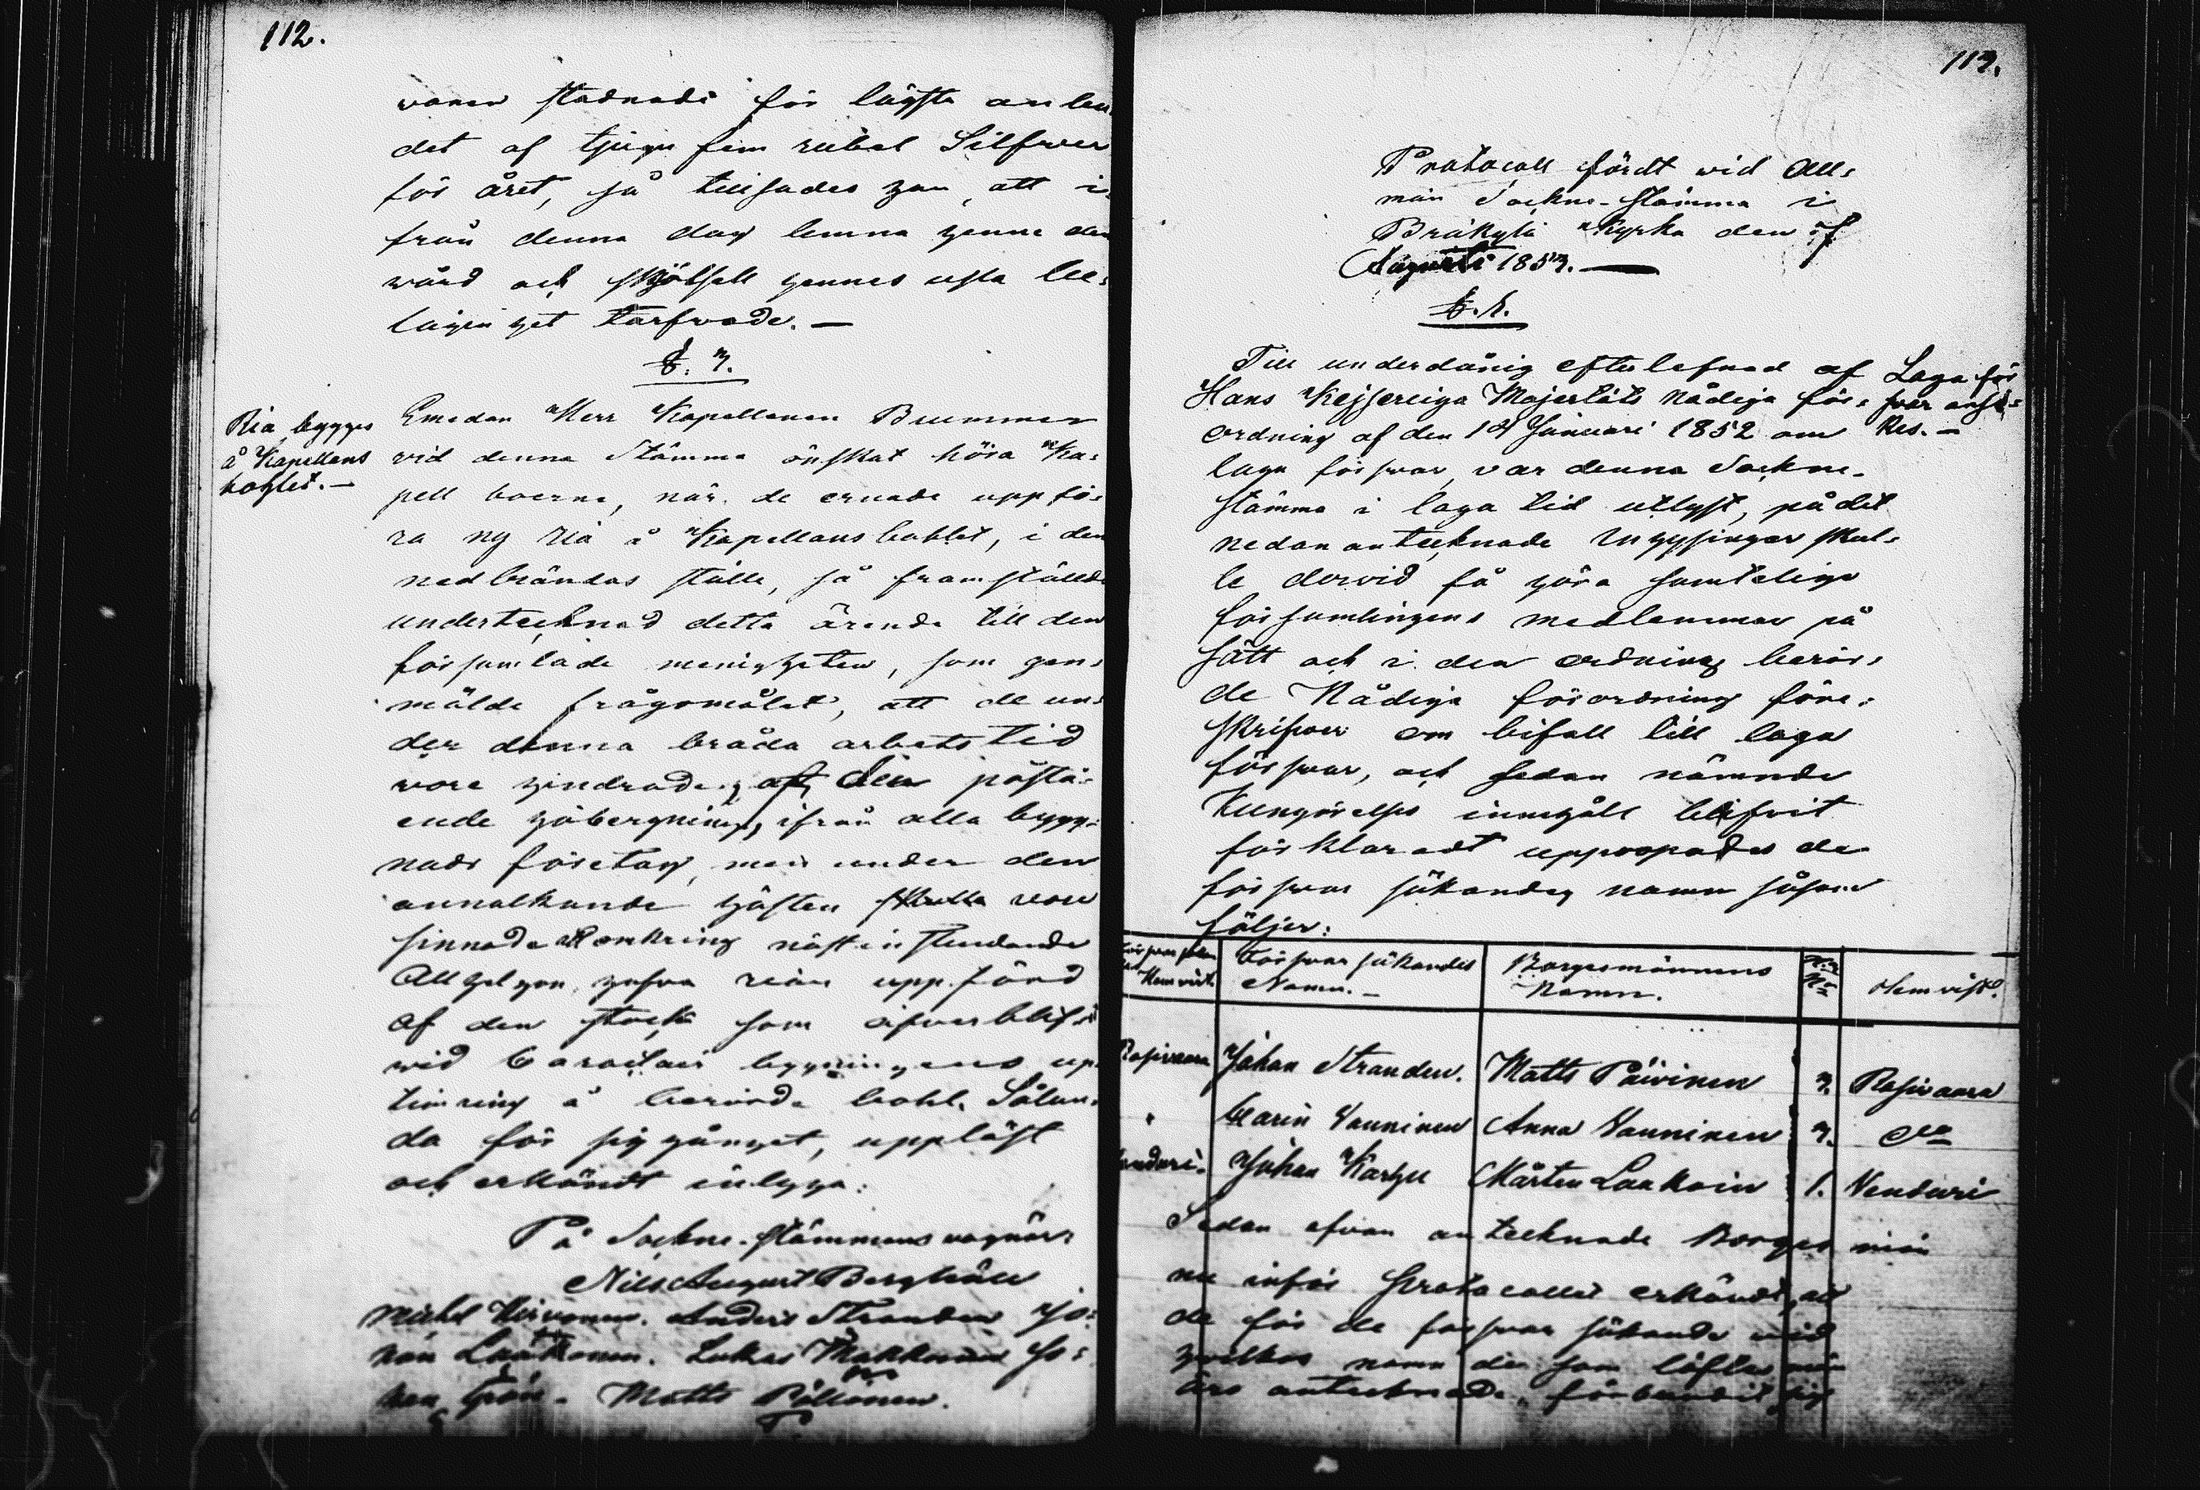 112.
wonen stadnade för lägsta anbu
det af tjugu fem rubel Silfwer
för året, så tillsades han att i
från denna dag lemna henne den
wård och skjötsell hennes usla be:
lägenhet tarfwade. —
§. 3.
Ria bygges
å Kapellans
bohlet. —
Emedan Herr Kapellanen Brummer
vid denna Stämma önskat höra Ka:
pell boerna, när de ernade uppfö:
ra ny ria å Kapellans bohlet, i den
nedbrändas ställe, så framställde
undertecknad detta ärende till den
församlade menigheten, som gen:
mälde frågomålet, att de un:
der denna bråda arbets tid
wore hindrade, af den påstå:
ende höbergning, ifrån alla bygg:
nads företag, men under den
annalkande hösten skulle
sinnade omkring nästinstundande
Allhelgon, hafva rian uppförd
af den stock som öfverblifvit
wid byggningens up
timring å berörde bohl. Sålun:
da för sig gånget, uppläst
och erkändt intyga:
På Sockne-stämmans vägnar:
Nils August Berghäll
Michel Hirvonen. Anders Stranden Jo:
han Laakonen. Lukas Makkonen Jo:
han. Matts Pöllönen.
113.
Protocoll fördt wid All:
män Sockne-stämma i
Bräkylä Kyrka den 7
Augusti 1853. —
§. 1.
Till underdånig efterlefnad af
Hans Kejserliga Majestäts Nådiga för:
ordning af den 19 Januari 1852 om
laga förswar, var denna Sockne-
stämma i laga tid utlyst, på det
nedanantecknade Inhysingar skul:
le dervid få höra samtelige
församlingens medlemmar på
sätt och i den ordning berör:
de Nådiga förordning före:
skrifver om bifall till laga
förswar, och sedan nämnde
Kungörelses innehåll blifvit
förklaradt uppropades de
förswar sökandes namn såsom
följer:
Laga för
svar ansö:
kes. —
Förswar sökan
des Hemvist
Förswar sökandes Namn. —
Borgesmännens Namn.
No
Hemvist.
Rasivaara Johan Stranden. Matts Päivinen 3. Rasivaara
" Carin Vanninen Anna Vanninen 3. do
Venduri. Johan Karhu Mårten Laakoin 1. Venduri
Sedan ofvan antecknade Borges män
nu inför Protocollet erkändt, att
de för de förswar sökande wid
hvilkas namn de som löftes män
äro antecknade, förbundit sig